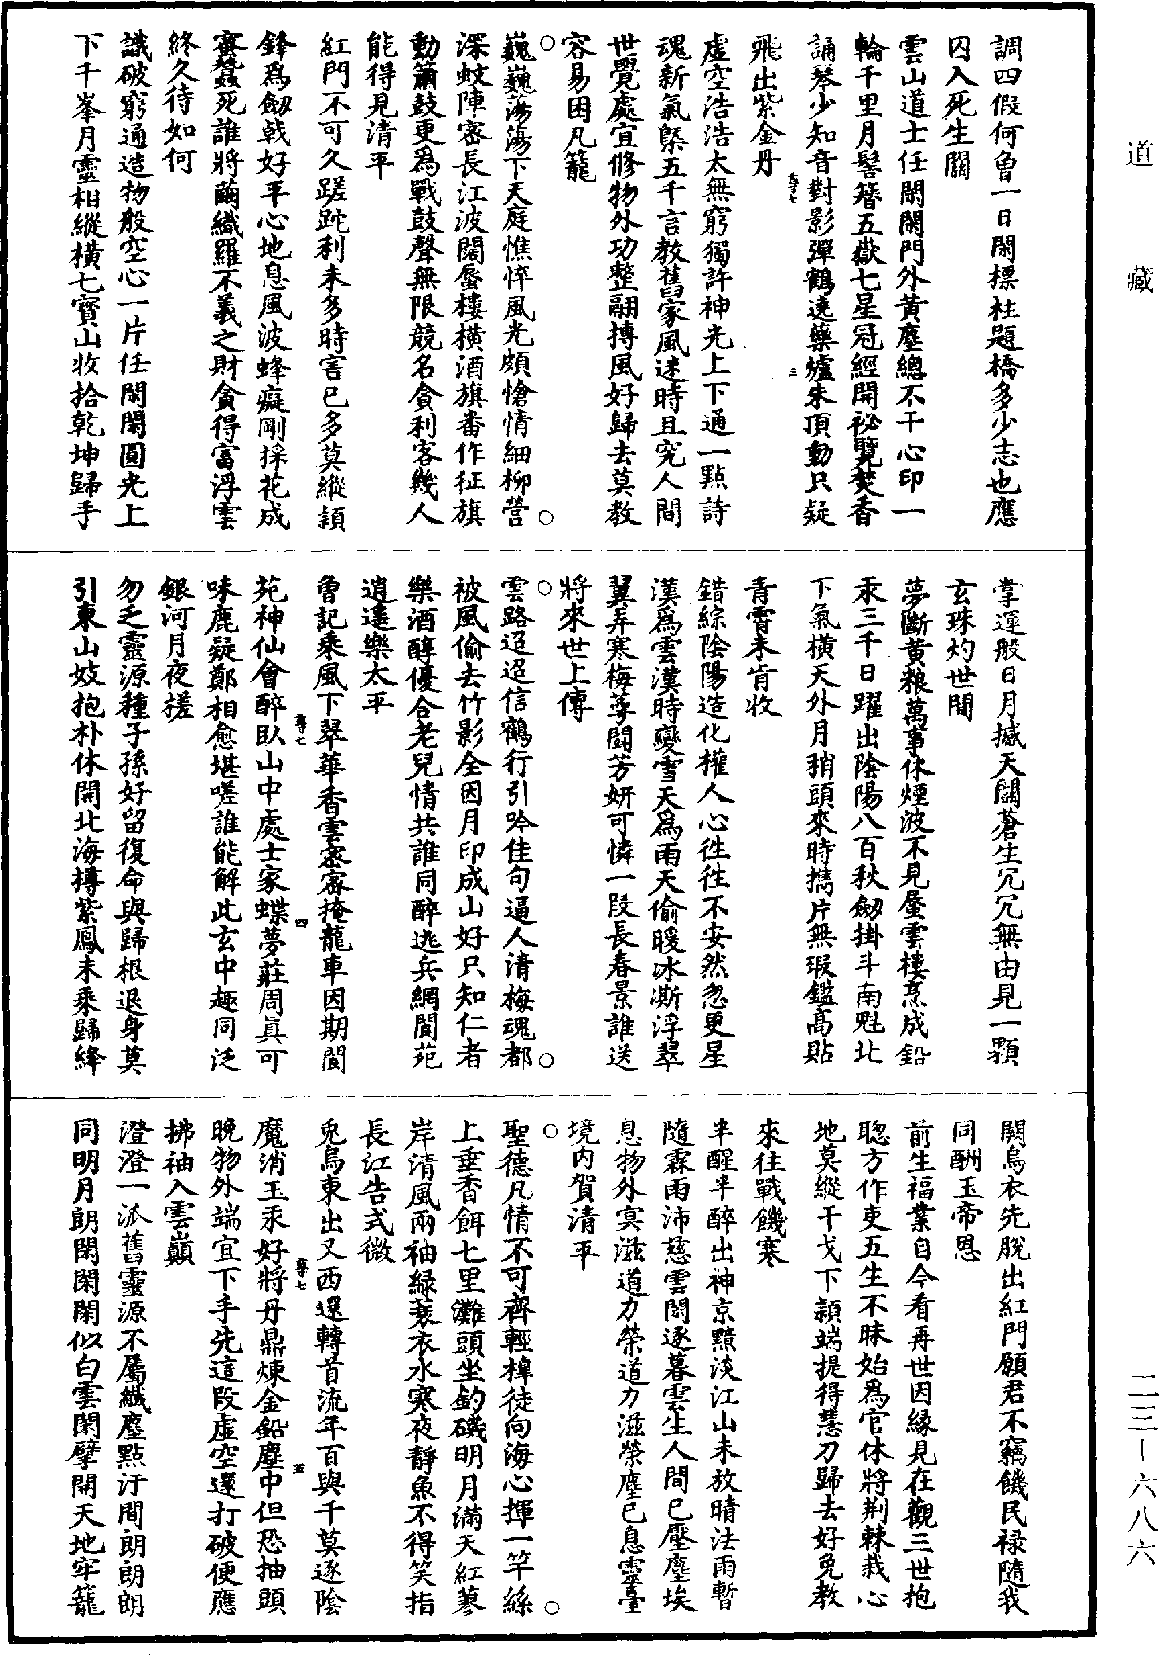 道藏
調四假何魯一日閑標柱題橋多少志也應
囚入死生關
雲山道士任閑閑門外黃塵總不干心印一
輪千里月髻簪五嶽七星冠經開祕覽焚香
誦琴少知音對影彈鶴遶藥爐朱頂動只疑
飛出紫金丹
虛空浩浩太無窮獨許神光上下通一點詩
魂新氣槩五千言教舊家風迷時且究人間
世覺處宜修物外功整翮摶風好歸去莫教
容易困凡籠
○○
巍巍蕩蕩下天庭憔悴風光頗愴情細柳營
深蚊陣密長江波闊蜃樓橫酒旗番作征旗
動簫鼓更為戰鼓聲無限競名貪利客幾人
能得見清平
紅門不可久蹉跎利未多時害已多莫縱頴
鋒為劒戟好平心地息風波蜂癡剛採花成
蜜蠶死誰將繭織羅不義之財貪得富浮雲
終久待如何
識破窮通造物般空心一片任閑閑圓光上
下千峯月靈相縱橫七寶山收拾乾坤歸手
掌運般日月撼天關蒼生冗冗無由見一顆
玄珠灼世間
夢斷黃粮萬事休煙波不見蜃雲樓烹成鉛
汞三千日躍出陰陽八百秋劒掛斗南魁北
下氣橫天外月稍頭來時擕片無瑕鑑高貼
青霄未肯收
錯綜陰陽造化權人心徃徃不安然忽更星
漢為雲漢時變雪天為雨天偷暖冰澌浮翠
翼弄寒梅萼鬪芳妍可憐一段長春景誰送
將來世上傳
○○
雲路迢迢信鶴行引吟佳句逼人清梅魂都
被風偷去竹影全因月印成山好只知仁者
樂酒醇優合老兒情共誰同醉逃兵網閬苑
逍遙樂太平
魯記乘風下翠華香雲密密掩龍車因期閬
苑神仙會醉臥山中處士家蝶夢莊周真可
味鹿疑鄭相愈堪嗟誰能解此玄中趣同泛
銀河月夜槎
勿乏靈源種子孫好留復命與歸根退身莫
引東山妓抱朴休開北海樽紫鳳未乘歸絳
闕烏衣先脫出紅門願君不竊饑民祿隨我
同酬玉帝恩
前生福業自今看再世因緣見在觀三世抱
聰方作吏五生不昧始為官休將荆棘栽心
地莫縱干戈下頴端提得慧刀歸去好免教
來往戰饑寒
半醒半醉出神京黯淡江山未放晴法雨暫
隨霖雨沛慈雲閑逐暮雲生人間已壓塵埃
息物外冥滋道力榮道力滋榮塵已息靈臺
境內賀清平
○○
聖德凡情不可齊輕棹徒向海心揮一竿絲
上垂香餌七里灘頭坐釣磯明月滿天紅蓼
岸清風兩袖綠蓑衣水寒夜靜魚不得笑指
長江告式微
兔烏東出又西還轉首流年百與千莫逐陰
魔消玉汞好將丹鼎煉金鉛塵中但恐抽頭
晚物外端宜下手先這段虛空還打破便應
拂袖入雲巔
澄澄一派舊靈源不屬纖塵點汙間朗朗朗
同明月朗閑閑閑似白雲閑擘開天地牢籠
二三—六八六